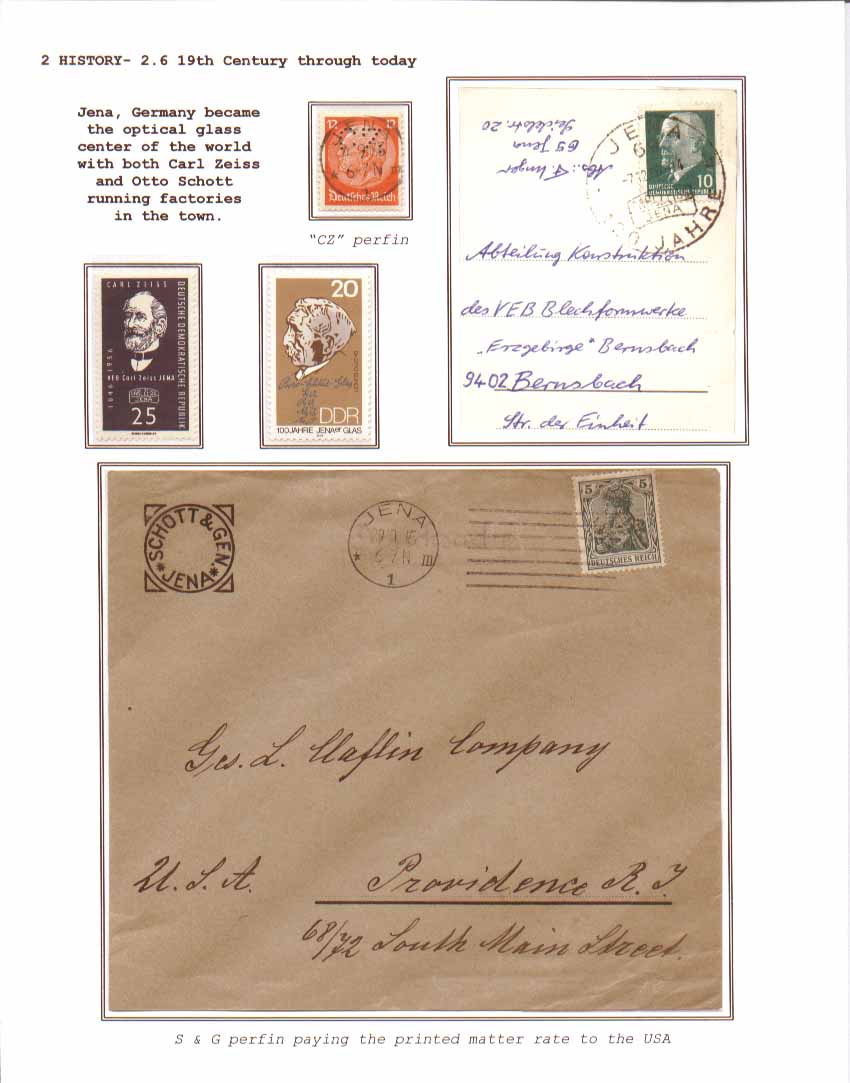 2 HISTORY- 2.6 19th Century through today
Jena, Germany became
the optical glass
center of the world
with both Carl Zeiss
and Otto Schott
running factories
in the town.
12 12
JENA
6-7N
Deutsches Reich
"CZ" perfin
CARL ZEISS
DEUTSCHE DEMOKRATISCHE REPUBLIK
1846-1956
VEB Carl Zeiss JENA
CARL ZEISS
JENA
25
20
DDR
100 JAHRE JENAer GLAS
Abs.: F. Unger
69 Jena
20
JENA
10
DEUTSCHE
DEMOKRATISCHE REPUBLIK
JENA
JAHRE
Abteilung Konstruktion
des VEB Blechformwerke
„Erzgebirge" Bernsbach
9402 Bernsbach
Str. der Einheit
SCHOTT & GEN
JENA
JENA
6-7N
III
1
5 5
DEUTSCHES REICH
Geo. L. Claflin Company
U.S.A. Providence R.I.
68/72 South Main Street.
S & G perfin paying the printed matter rate to the USA